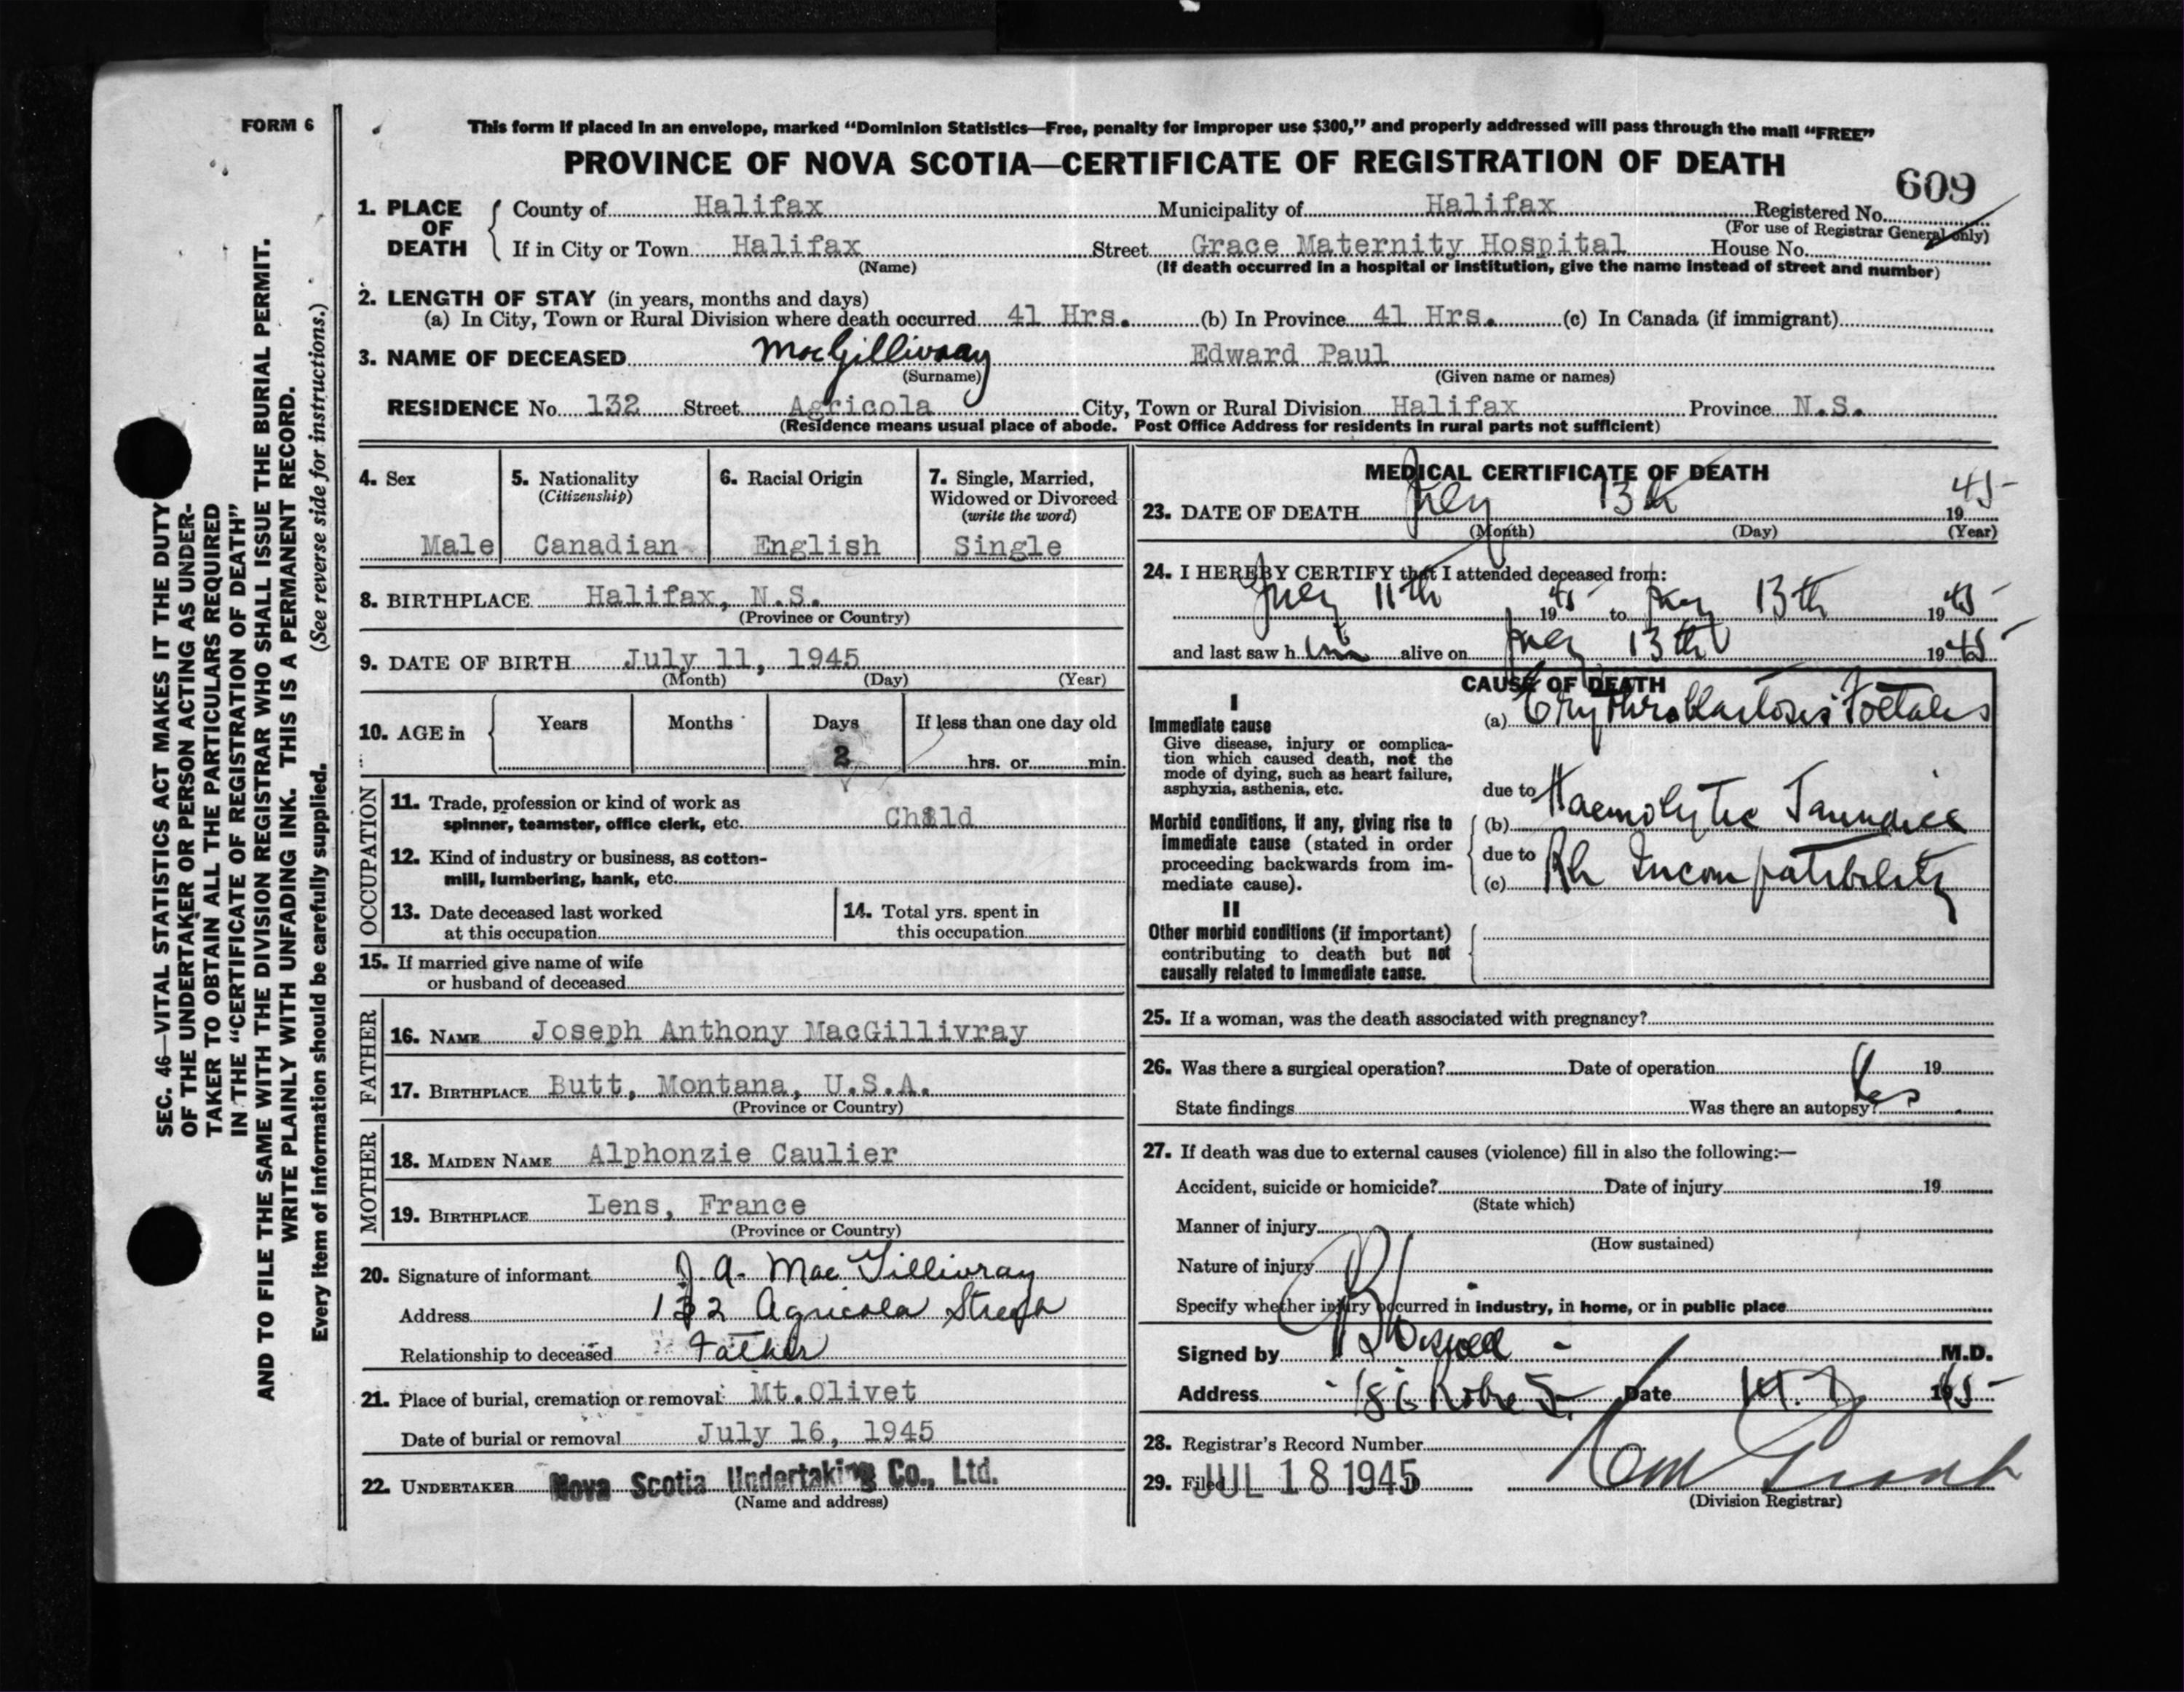 FORM 6
This form if placed in an envelope, marked “Dominion Statistics—Free, penalty for improper use $300,” and properly addressed will pass through the mail “FREE”
PROVINCE OF NOVA SCOTIA—CERTIFICATE OF REGISTRATION OF DEATH
609
1. PLACE OF DEATH
County of Halifax Municipality of Halifax Registered No.
(For use of Registrar General only)
If in City or Town Halifax Street Grace Maternity Hospital House No.
(Name) (If death occurred in a hospital or institution, give the name instead of street and number)
2. LENGTH OF STAY (in years, months and days)
(a) In City, Town or Rural Division where death occurred 41 Hrs. (b) In Province 41 Hrs. (c) In Canada (if immigrant)
3. NAME OF DECEASED MacGillivray Edward Paul
(Surname) (Given name or names)
RESIDENCE No. 132 Street Agricola City, Town or Rural Division Halifax Province N.S.
(Residence means usual place of abode. Post Office Address for residents in rural parts not sufficient)
4. Sex
Male
5. Nationality
(Citizenship)
Canadian
6. Racial Origin
English
7. Single, Married,
Widowed or Divorced
(write the word)
Single
8. BIRTHPLACE Halifax, N.S.
(Province or Country)
9. DATE OF BIRTH July 11, 1945
(Month) (Day) (Year)
10. AGE in
Years Months Days If less than one day old
2 hrs. or min.
OCCUPATION
11. Trade, profession or kind of work as
spinner, teamster, office clerk, etc. Child
12. Kind of industry or business, as cotton-
mill, lumbering, bank, etc.
13. Date deceased last worked
at this occupation
14. Total yrs. spent in
this occupation
15. If married give name of wife
or husband of deceased
FATHER
16. NAME Joseph Anthony MacGillivray
17. BIRTHPLACE Butt, Montana, U.S.A.
(Province or Country)
MOTHER
18. MAIDEN NAME Alphonzie Caulier
19. BIRTHPLACE Lens, France
(Province or Country)
20. Signature of informant J. A. MacGillivray
Address 132 Agricola Street
Relationship to deceased Father
21. Place of burial, cremation or removal Mt.Olivet
Date of burial or removal July 16, 1945
22. UNDERTAKER Nova Scotia Undertaking Co., Ltd.
(Name and address)
MEDICAL CERTIFICATE OF DEATH
23. DATE OF DEATH July 13th 1945
(Month) (Day) (Year)
24. I HEREBY CERTIFY that I attended deceased from:
July 11th 1945 to July 13th 1945
and last saw him alive on July 13th 1945
CAUSE OF DEATH
I
Immediate cause
Give disease, injury or complica-
tion which caused death, not the
mode of dying, such as heart failure,
asphyxia, asthenia, etc.
(a) Erythroblastosis Foetales
due to
(b) Haemolytic Jaundice
due to
(c) Rh Incompatibility
Morbid conditions, if any, giving rise to
immediate cause (stated in order
proceeding backwards from im-
mediate cause).
II
Other morbid conditions (if important)
contributing to death but not
causally related to immediate cause.
25. If a woman, was the death associated with pregnancy?
26. Was there a surgical operation? Date of operation 19
State findings Was there an autopsy? Yes
27. If death was due to external causes (violence) fill in also the following:—
Accident, suicide or homicide? Date of injury 19
(State which)
Manner of injury
(How sustained)
Nature of injury
Specify whether injury occurred in industry, in home, or in public place
Signed by M.D.
Address Date 1945
28. Registrar's Record Number
29. Filed JUL 18 1945
(Division Registrar)
SEC. 46—VITAL STATISTICS ACT MAKES IT THE DUTY
OF THE UNDERTAKER OR PERSON ACTING AS UNDER-
TAKER TO OBTAIN ALL THE PARTICULARS REQUIRED
IN THE “CERTIFICATE OF REGISTRATION OF DEATH”
AND TO FILE THE SAME WITH THE DIVISION REGISTRAR WHO SHALL ISSUE THE BURIAL PERMIT.
WRITE PLAINLY WITH UNFADING INK. THIS IS A PERMANENT RECORD.
Every item of information should be carefully supplied. (See reverse side for instructions.)